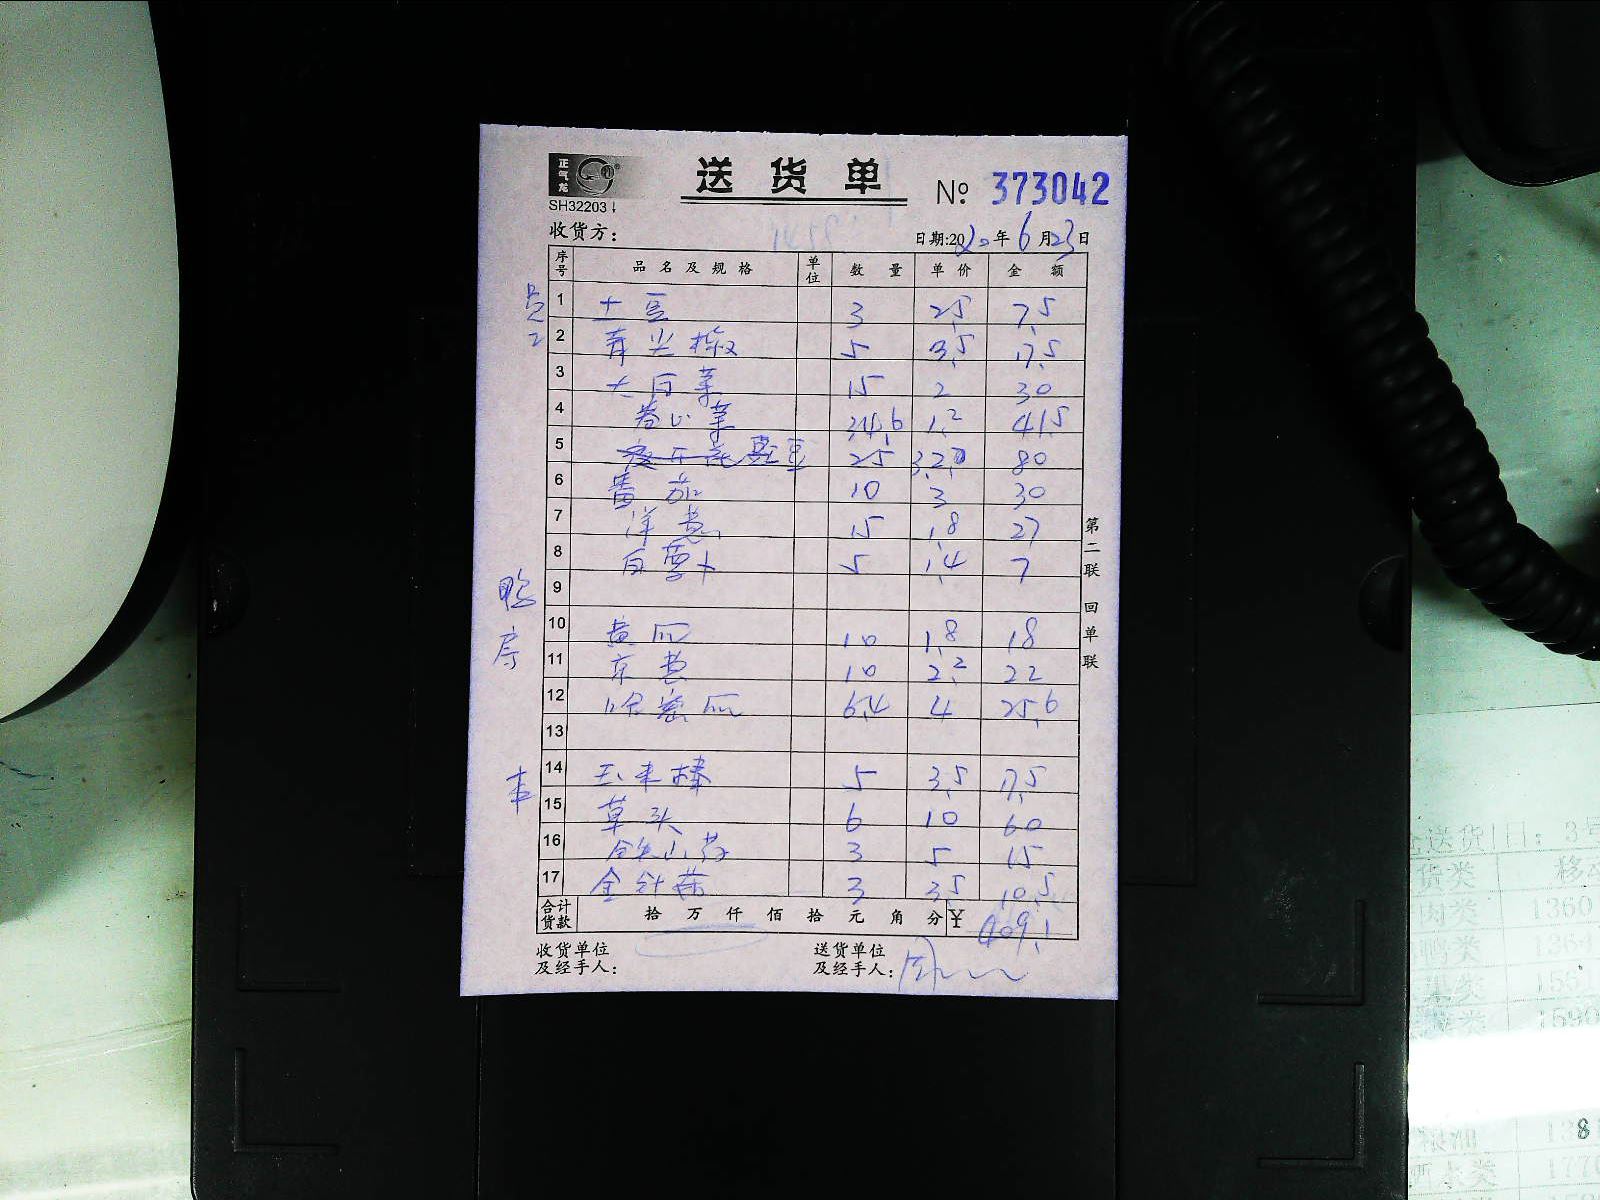 正气龙
SH32203
送货单
№ 373042
收货方:
日期:2020年6月23日
序号 品名及规格 单位 数量 单价 金额
员工
1 土豆 3 2.5 7.5
2 青尖椒 5 3.5 17.5
3 大白菜 15 2 30
4 卷心菜 34.6 1.2 41.5
5 豆 25 3.2 80
6 番茄 10 3 30
7 洋葱 15 1.8 27
8 白萝卜 5 1.4 7
鸭房
9
10 黄瓜 10 1.8 18
11 京葱 10 2.2 22
12 哈密瓜 6.4 4 25.6
13
14 玉米棒 5 3.5 17.5
15 草头 6 10 60
16 铁山药 3 5 15
17 金针菇 3 3.5 10.5
合计货款 拾 万 仟 佰 拾 元 角 分 ¥ 409.1
收货单位及经手人:
送货单位及经手人:
第二联 回单联
送货 日: 3号
货类
肉类 1360
鸭类